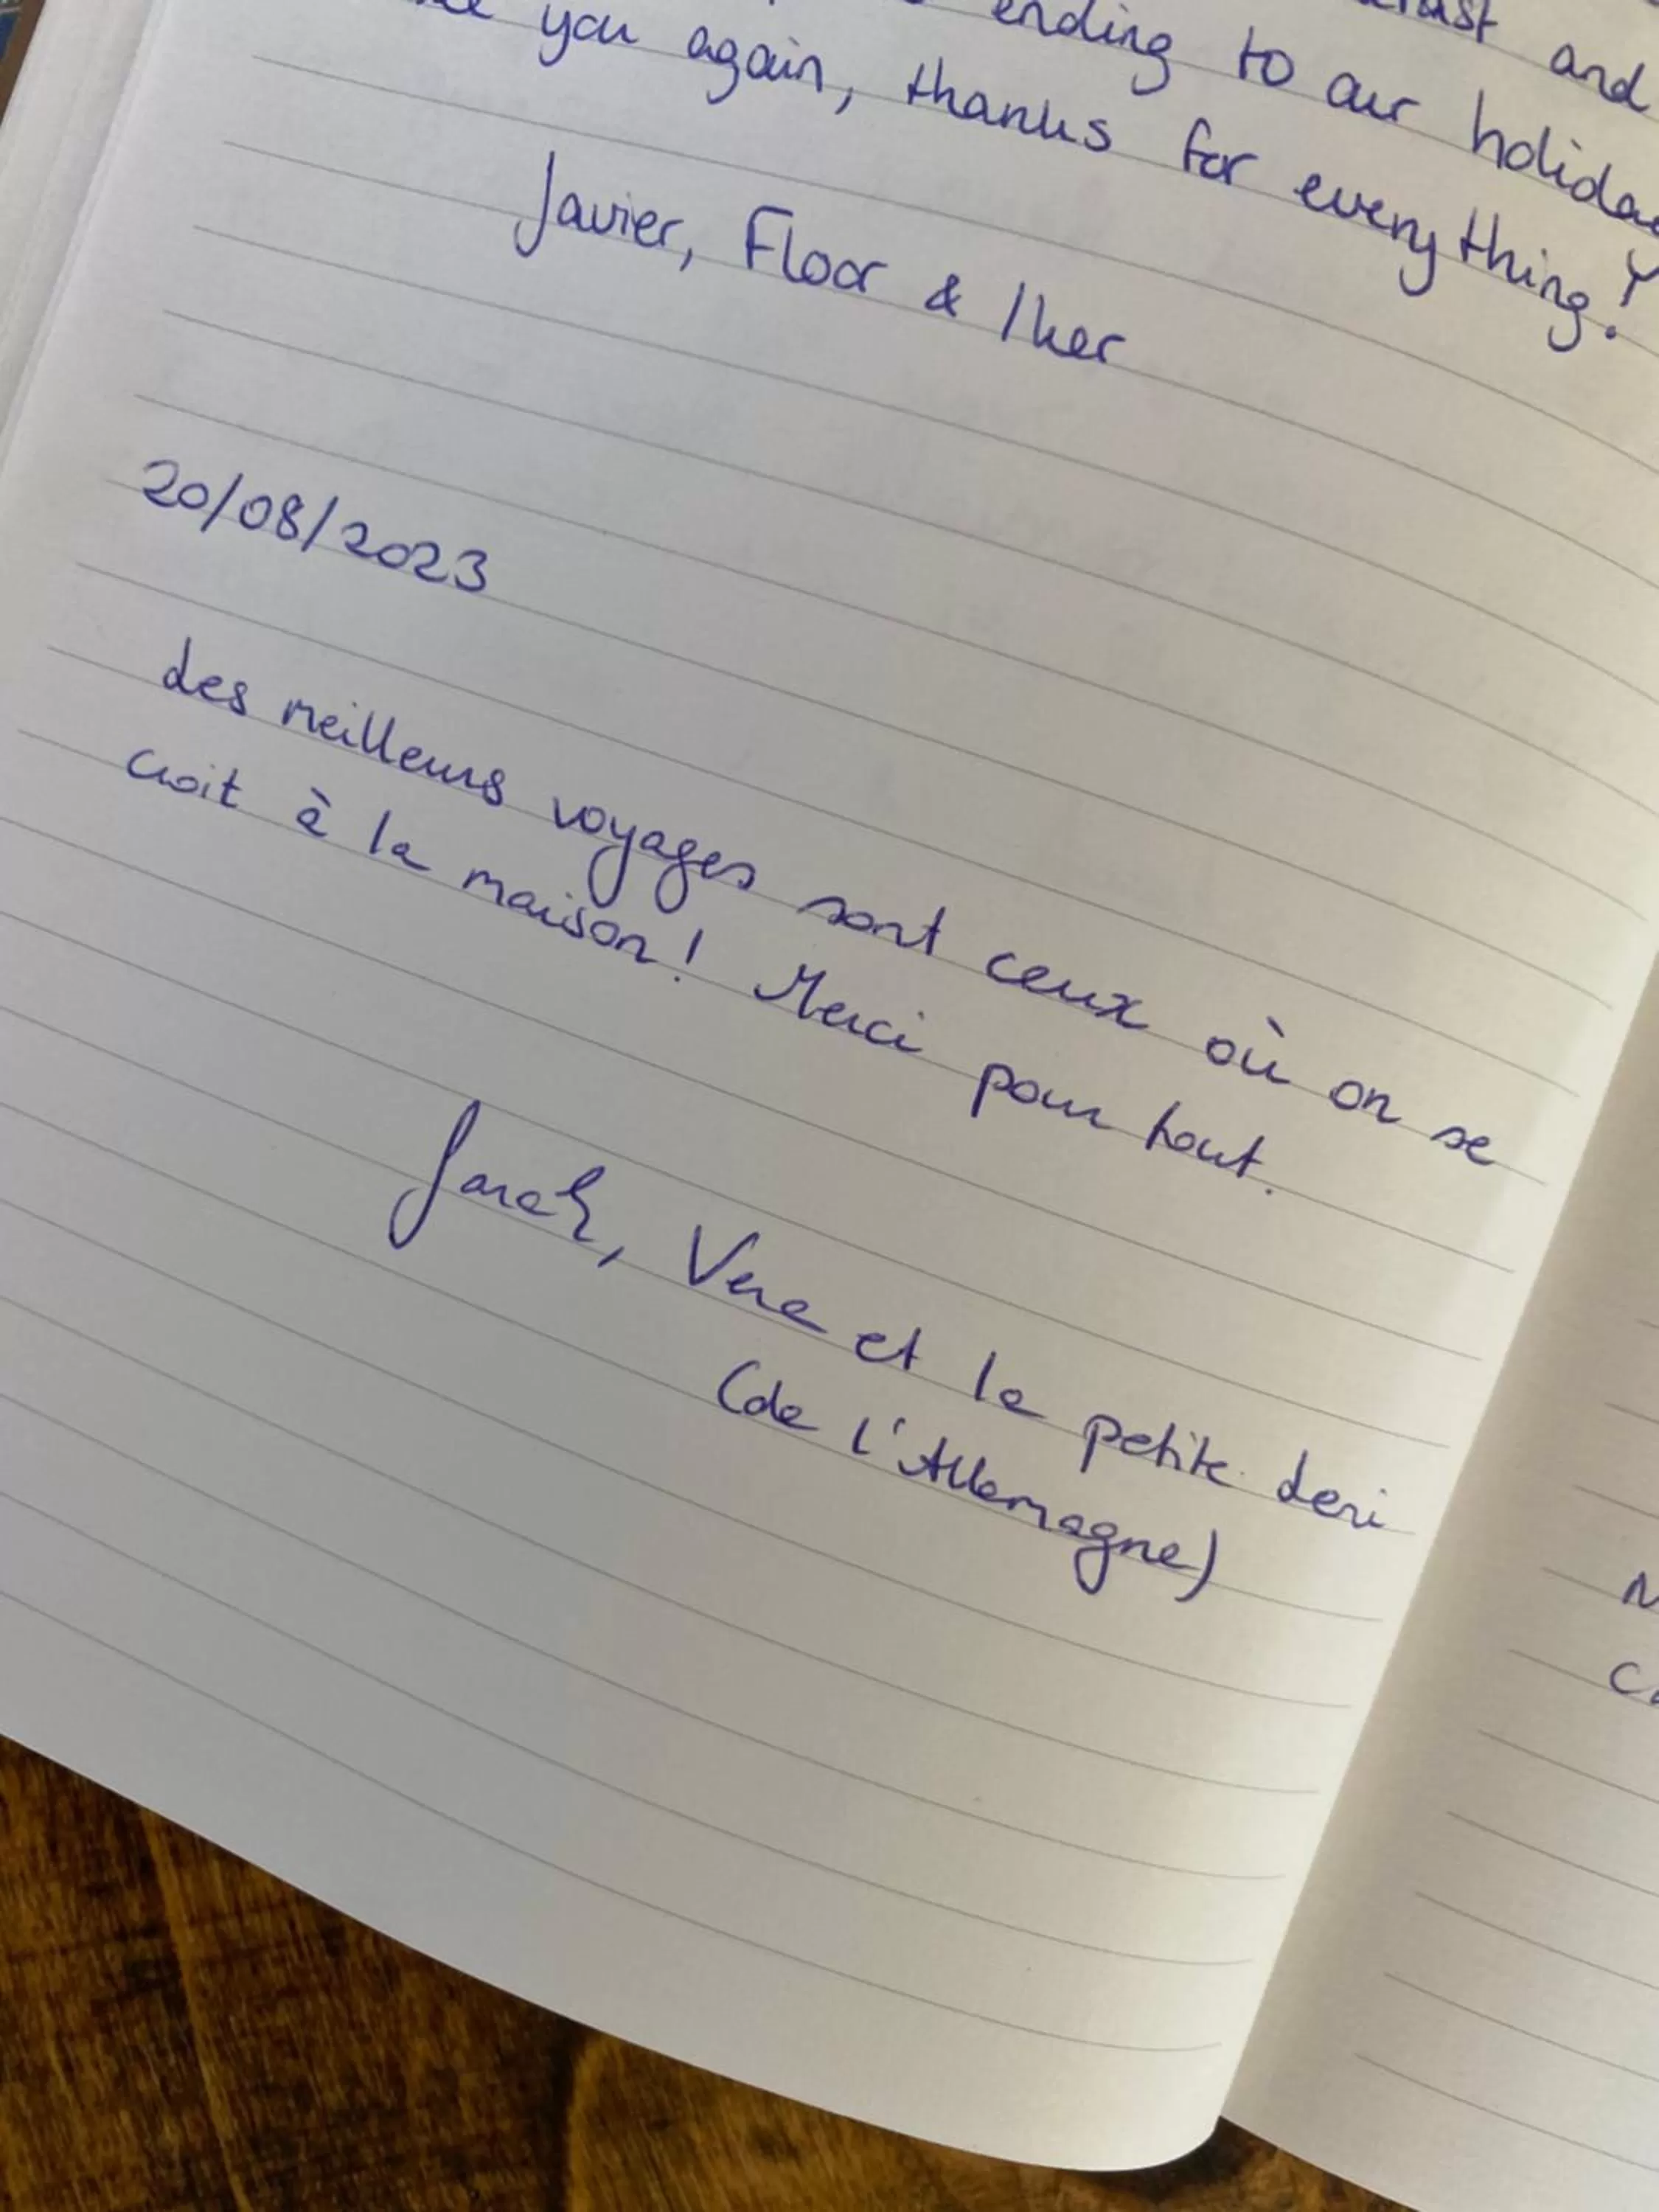 and
ending to our holiday
you again, thanks for everything!
Javier, Floor & Iker
20/08/2023
Les meilleurs voyages sont ceux où on se
croit à la maison! Merci pour tout.
Sarah, Vera et la petite Leni
(de l'Allemagne)